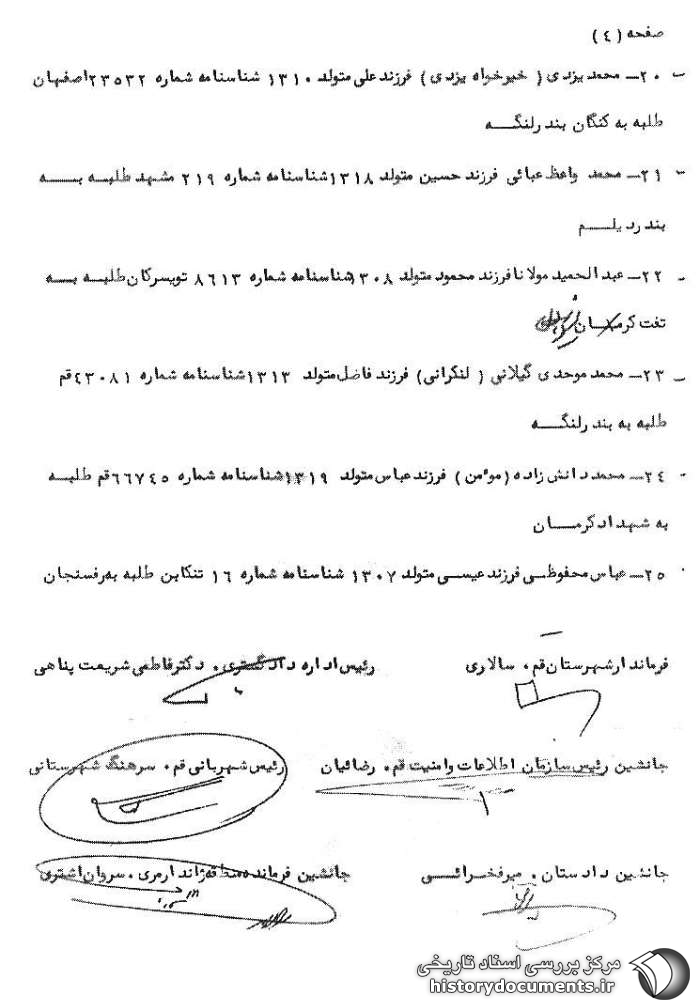 صفحه (٤)
٢٠ـ محمد یزدی ( خیرخواه یزدی ) فرزند علی متولد ١٣١٠ شناسنامه شماره ٢٣٥٣٢ اصفهان
طلبه به کنگان بند رلنگـــه
٢١ـ محمد واعظ عبائی فرزند حسین متولد ١٣١٨ شناسنامه شماره ٢١٩ مشهد طلبـه بـــه
بند ردیلـــم
٢٢ـ عبد الحمید مولانا فرزند محمود متولد ١٣٠٨ شناسنامه شماره ٨٦١٣ تویسرکان طلبـه بـه
تفت کرمـــان
٢٣ـ محمد موحدی گیلانی ( لنکرانی) فرزند فاضل متولد ١٣١٣ شناسنامه شماره ٤٣٠٨١ قم
طلبه به بند رلنگـــه
٢٤ـ محمد دانش زاده (موٴمن ) فرزند عباس متولد ١٣١٩ شناسنامه شماره ٦٦٧٤٥ قم طلبـه
به شهداد کرمـــان
٢٥ـ عباس محفوظـی فرزند عیسی متولد ١٣٠٧ شناسنامه شماره ١٦ تنکابن طلبه به رفسنجان
فرماندار شهرستان قم ٠ سالاری
رئیس اداره دادگستری ٠ دکتر فاطمی شریعت پناهی
جانشین رئیس سازمان اطلاعات وامنیت قم ٠ رضائیان
رئیس شهربانی قم ٠ سرهنگ شهرستانی
جانشین دادستان ٠ میرفخرائـــی
جانشین فرمانده منطقه ژاندارمری ٠ سروان اشتری
مرکز بررسی اسناد تاریخی
historydocuments.ir